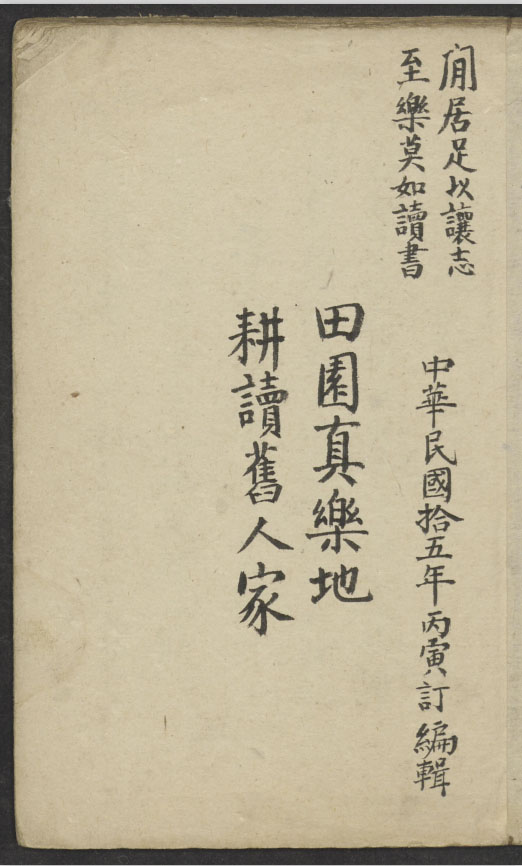 閒居足以讓志
至樂莫如讀書
中華民國拾五年丙寅訂編輯
田園真樂地
耕讀舊人家